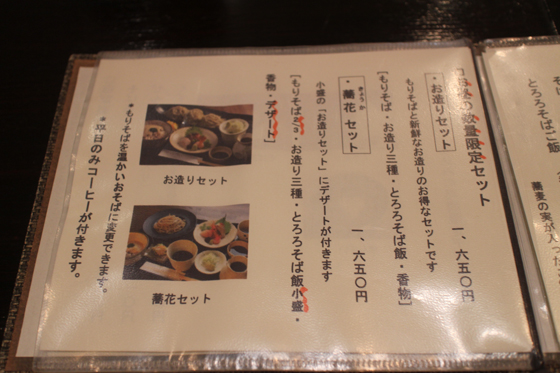 の数量限定セット
・お造りセット 一、六五〇円
もりそばと新鮮なお造りのお得なセットです
［もりそば・お造り三種・とろろそば飯・香物］
・蘭花セット 一、六五〇円
きょうか
小盛の「お造りセット」にデザートが付きます
［もりそば・お造り三種・とろろそば飯小盛・
香物・デザート］
お造りセット
蘭花セット
＊もりそばを温かいおそばに変更できます。
＊平日のみコーヒーが付きます。
とろろそばご飯